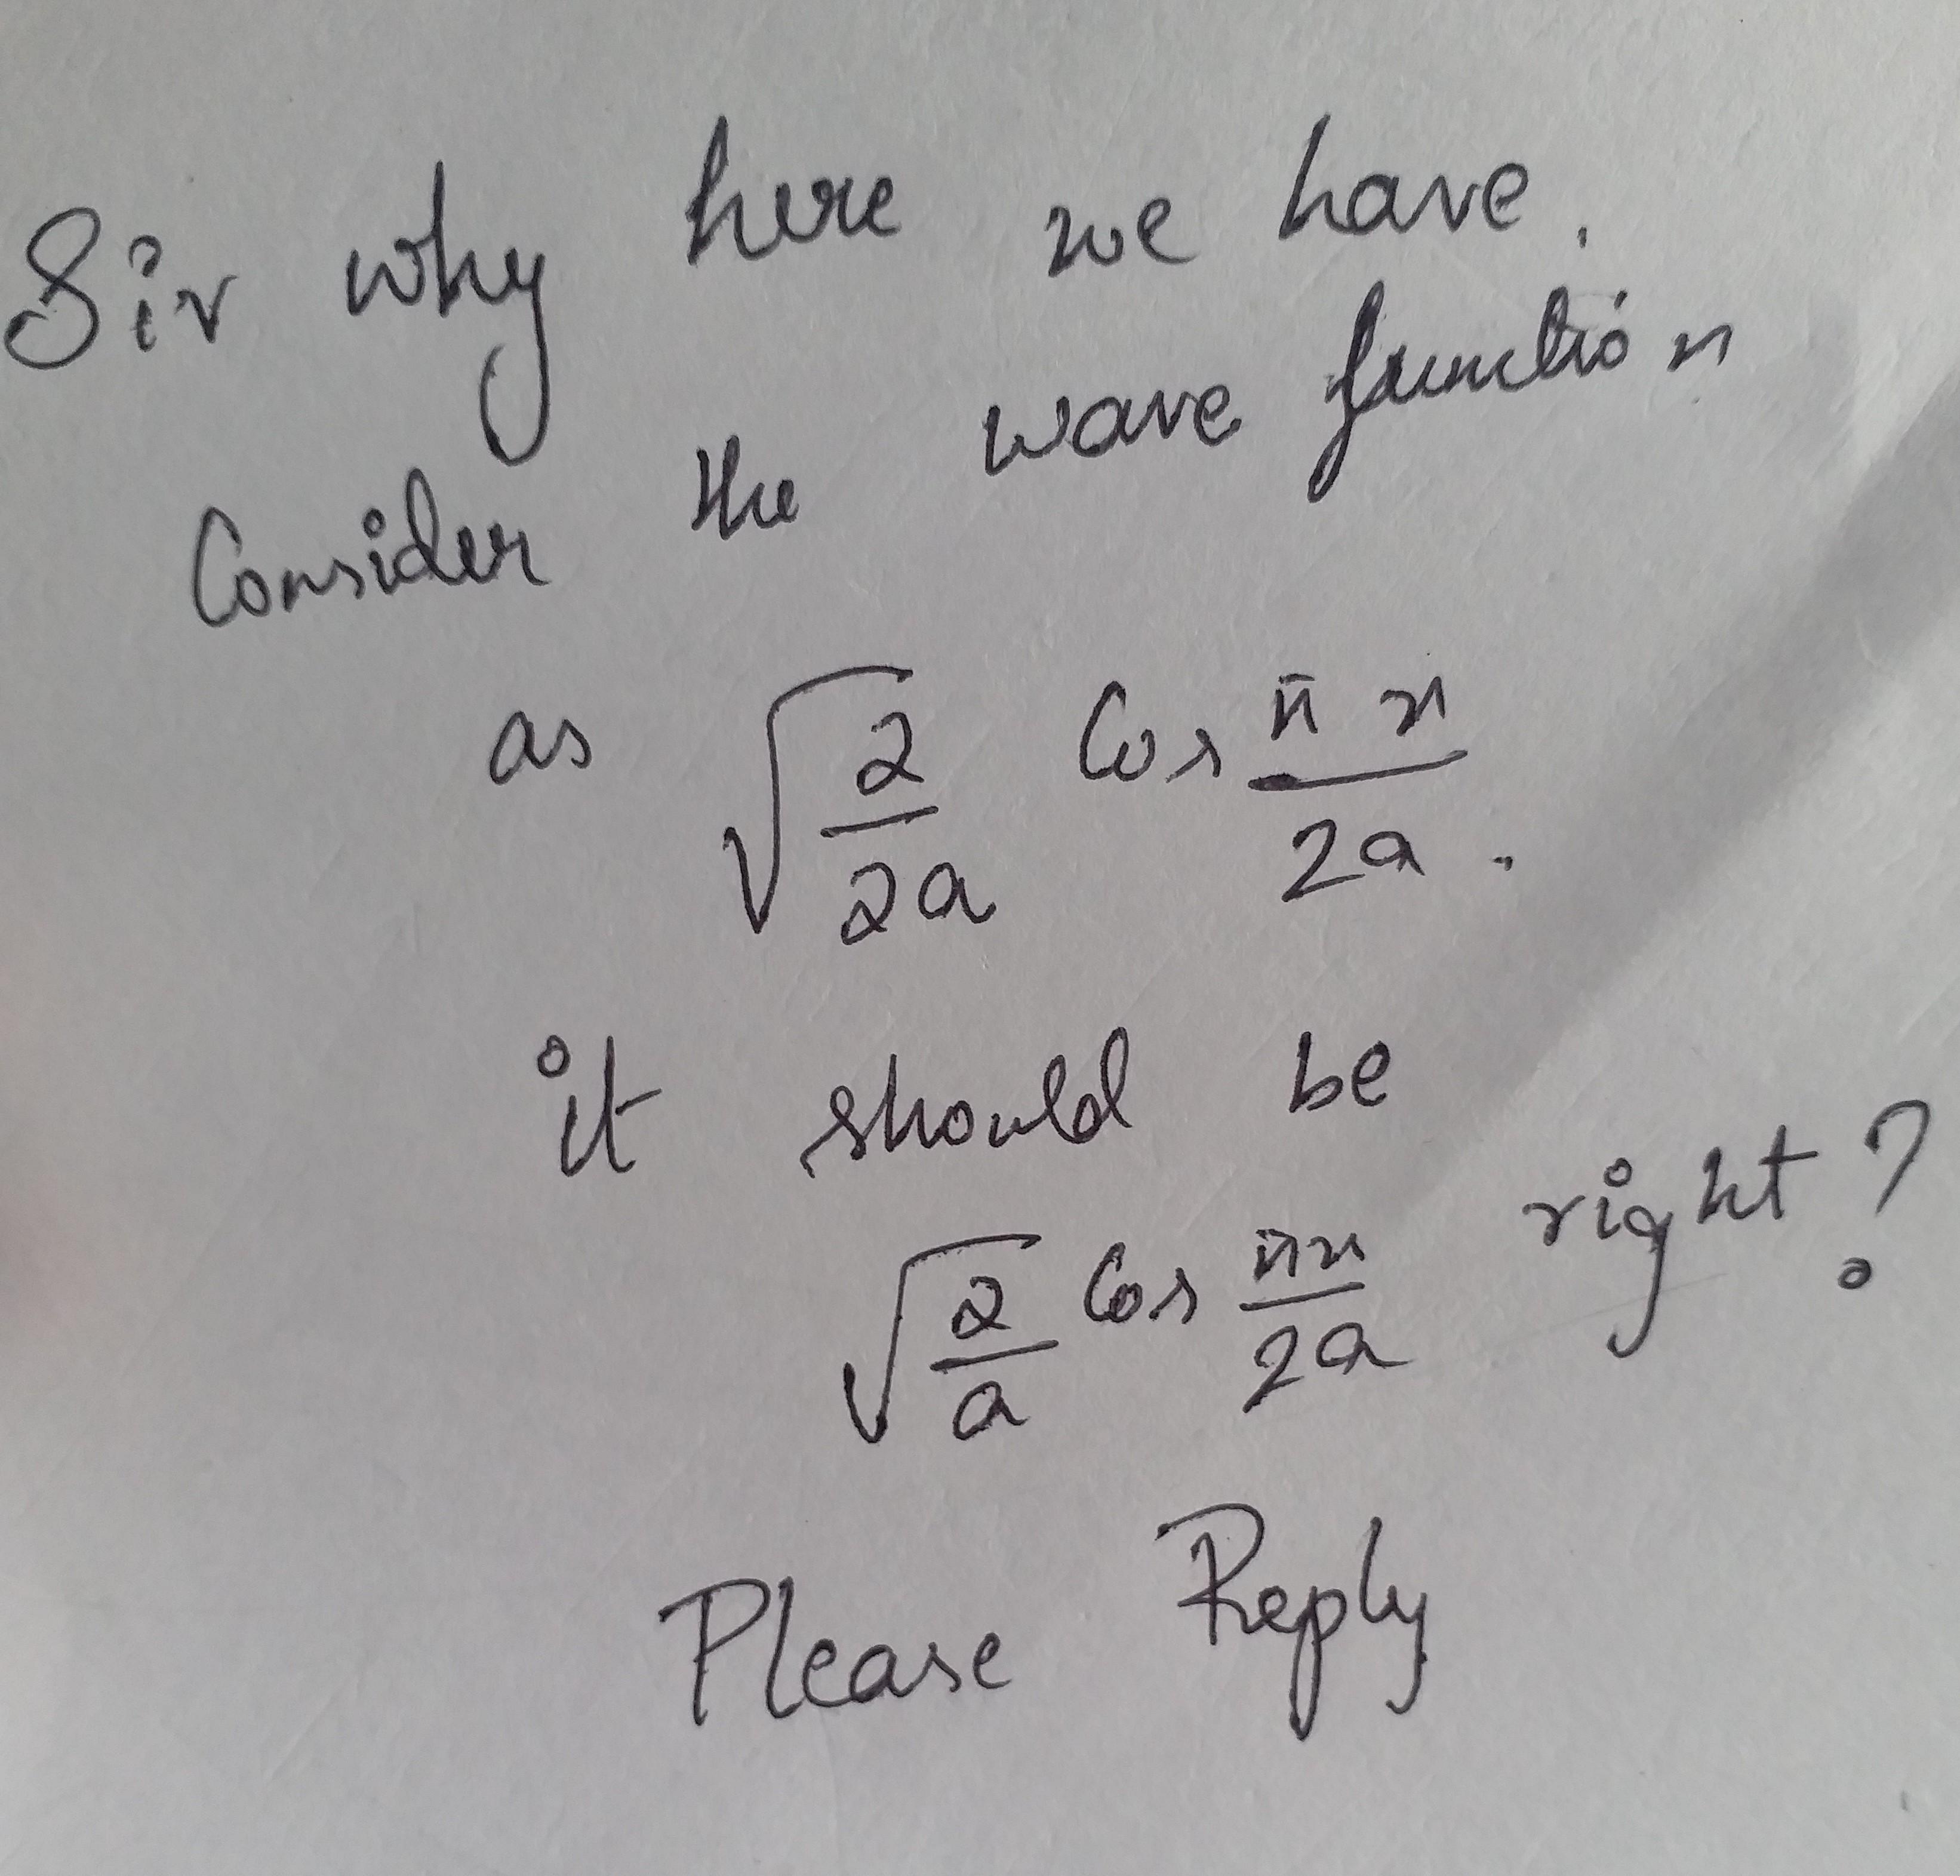 Sir why here we have.
Consider the wave function
as √(2/2a) Cos πx/2a.
it should be
√(2/a) Cos πx/2a right?
Please Reply